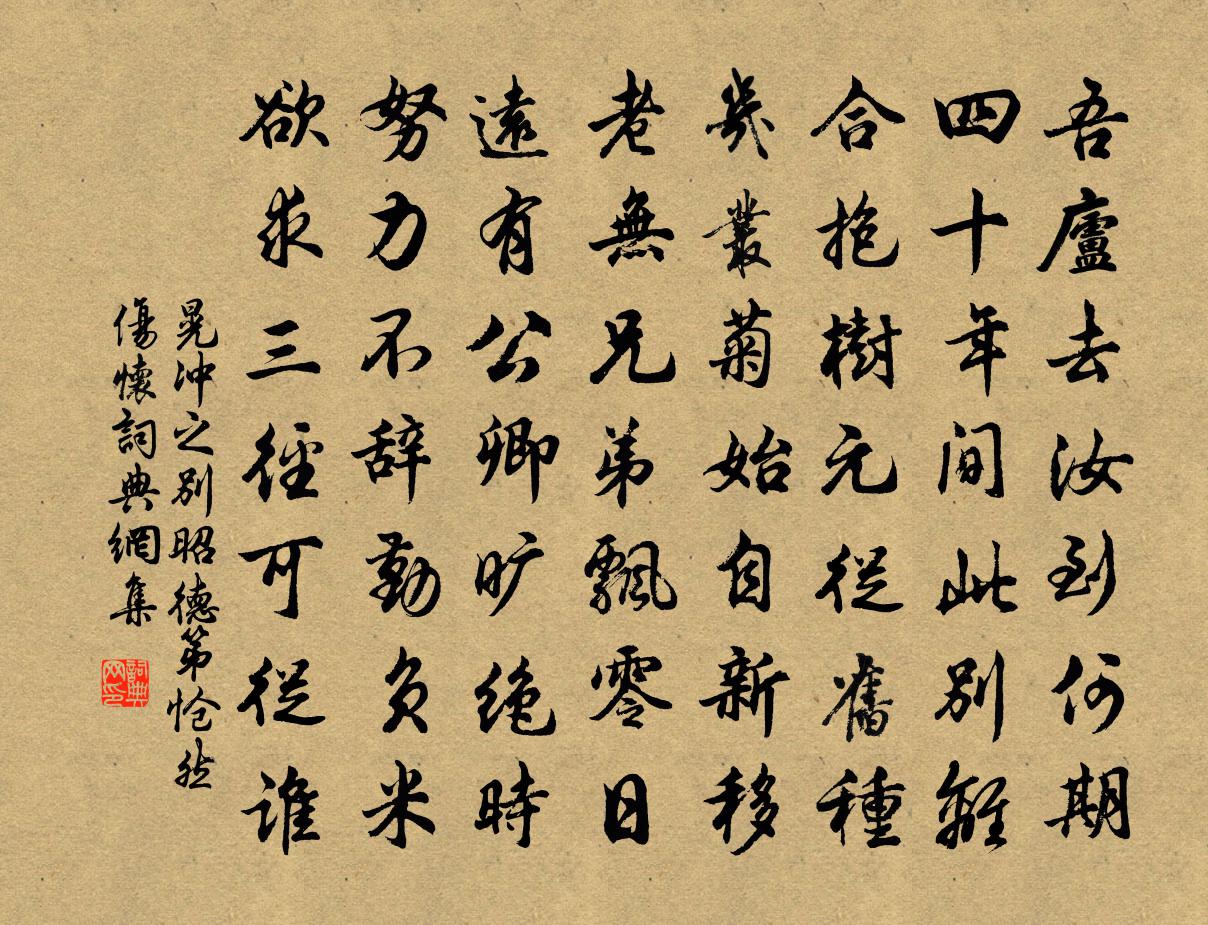 吾廬去汝到何期
四十年間此別離
合抱樹元從舊種
幾叢菊始自新移
老無兄弟飄零日
遠有公卿曠絕時
努力不辭勤負米
欲求三徑可從誰
晁沖之別昭德第愴然
傷懷詞典網集
詞典网印